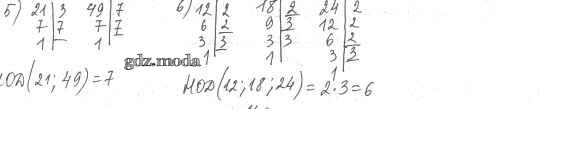 5) 21 | 3 49 | 7 б) 12 | 2 18 | 2 24 | 2
7 | 7 7 | 7 6 | 2 9 | 3 12 | 2
1 1 3 | 3 3 | 3 6 | 2
1 1 3 | 3
gdz.moda
1
НОД(21; 49) = 7 НОД(12; 18; 24) = 2·3 = 6